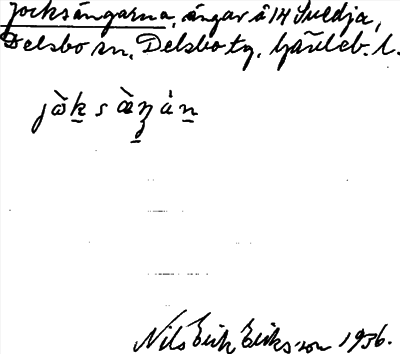 Jocksängarna, ängar å 14 Svedja,
Delsbo sn, Delsbo tg, Gävleb. l.
jòksàŋan
Nils Erik Eriksson 1936.